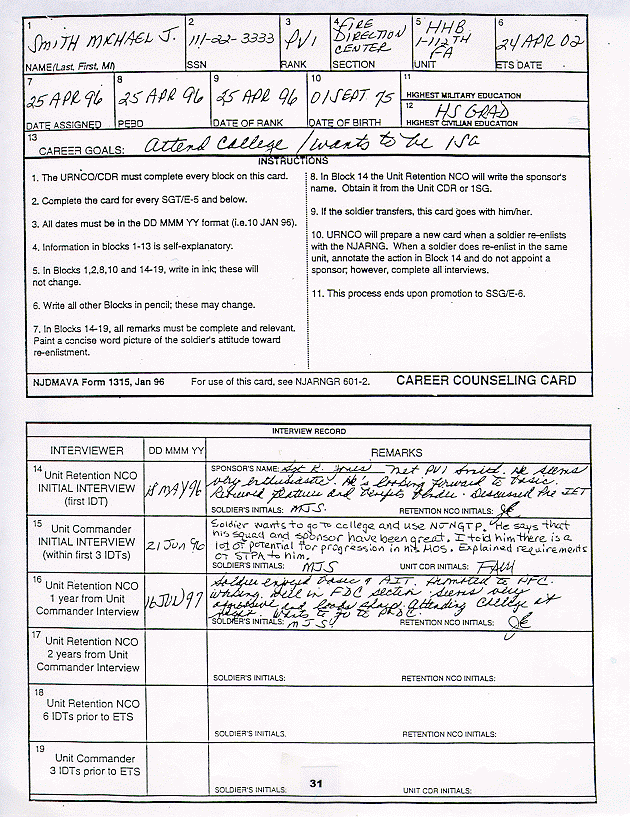 1 2 3 4 5 6
SMITH MICHAEL J. 111-22-3333 PV1 FIRE DIRECTION CENTER HHB, 1-112TH FA 24 APR 02
NAME(Last, First, MI) SSN RANK SECTION UNIT ETS DATE
7 8 9 10 11
25 APR 96 25 APR 96 25 APR 96 01 SEPT 75 HIGHEST MILITARY EDUCATION
12 HS GRAD
DATE ASSIGNED PEBD DATE OF RANK DATE OF BIRTH HIGHEST CIVILIAN EDUCATION
13 CAREER GOALS: Attend College / wants to be 1SG
INSTRUCTIONS
1. The URNCO/CDR must complete every block on this card.
2. Complete the card for every SGT/E-5 and below.
3. All dates must be in the DD MMM YY format (i.e.10 JAN 96).
4. Information in blocks 1-13 is self-explanatory.
5. In Blocks 1,2,8,10 and 14-19, write in ink; these will
not change.
6. Write all other Blocks in pencil; these may change.
7. In Blocks 14-19, all remarks must be complete and relevant.
Paint a concise word picture of the soldier's attitude toward
re-enlistment.
8. In Block 14 the Unit Retention NCO will write the sponsor's
name. Obtain it from the Unit CDR or 1SG.
9. If the soldier transfers, this card goes with him/her.
10. URNCO will prepare a new card when a soldier re-enlists
with the NJARNG. When a soldier does re-enlist in the same
unit, annotate the action in Block 14 and do not appoint a
sponsor; however, complete all interviews.
11. This process ends upon promotion to SSG/E-6.
NJDMAVA Form 1315, Jan 96 For use of this card, see NJARNGR 601-2. CAREER COUNSELING CARD
INTERVIEW RECORD
INTERVIEWER DD MMM YY REMARKS
14 Unit Retention NCO
INITIAL INTERVIEW
(first IDT)
18 MAY 96
SPONSOR'S NAME: Sgt R. Jones Met PV1 Smith. He seems
very enthusiastic. He's looking forward to basic.
Reviewed and benefits. Discussed Pre IET
SOLDIER'S INITIALS: MJS. RETENTION NCO INITIALS:
15 Unit Commander
INITIAL INTERVIEW
(within first 3 IDTs)
21 JUN 96
Soldier wants to go to college and use NJNGTP. He says that
his squad and sponsor have been great. I told him there is a
lot of potential for progression in his MOS. Explained requirements
of STPA to him.
SOLDIER'S INITIALS: MJS UNIT CDR INITIALS:
16 Unit Retention NCO
1 year from Unit
Commander Interview
16 JUN 97
Soldier enjoyed basic & AIT. Promoted to PFC.
Working well in FDC section. Seems very
aggressive and looks sharp. Attending College at
Wants to go to PLDC.
SOLDIER'S INITIALS: MJS. RETENTION NCO INITIALS:
17 Unit Retention NCO
2 years from Unit
Commander Interview
SOLDIER'S INITIALS: RETENTION NCO INITIALS:
18
Unit Retention NCO
6 IDTs prior to ETS
SOLDIER'S INITIALS. RETENTION NCO INITIALS:
19
Unit Commander
3 IDTs prior to ETS
SOLDIER'S INITIALS: UNIT CDR INITIALS:
31